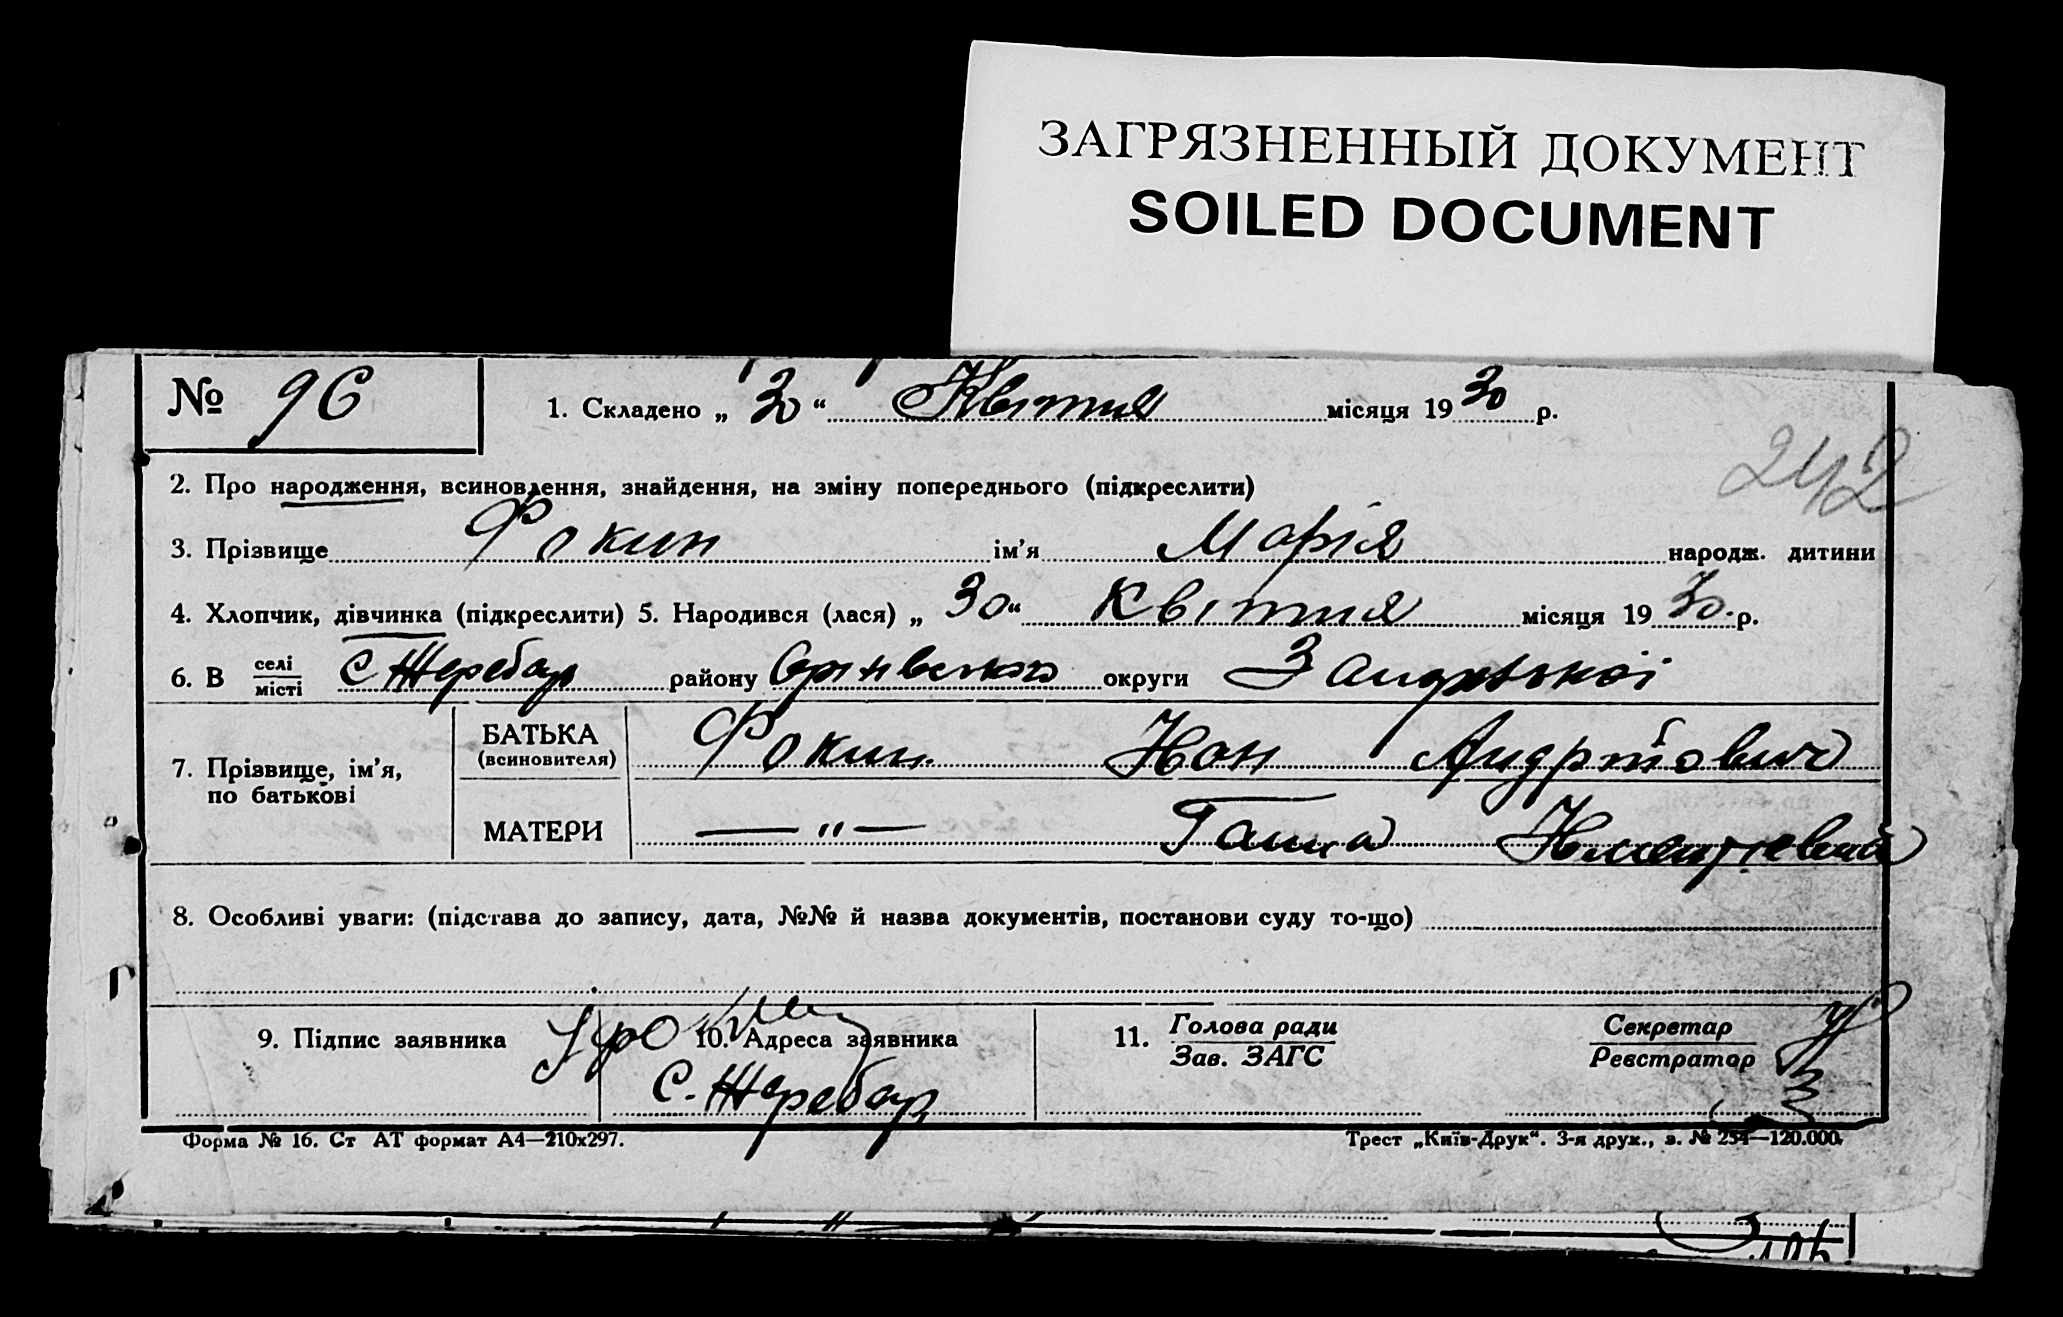 ЗАГРЯЗНЕННЫЙ ДОКУМЕНТ
SOILED DOCUMENT
№ 96
1. Складено „ 30 “ Квітня місяця 1930 р.
242
2. Про народження, всиновлення, знайдення, на зміну попереднього (підкреслити)
3. Прізвище Фокин ім’я Марія народж. дитини
4. Хлопчик, дівчинка (підкреслити) 5. Народився (лася) „ 30 “ Квітня місяця 1930 р.
6. В селі місті С Жеребец району округи
7. Прізвище, ім’я, по батькові
БАТЬКА (всиновителя) Фокин
МАТЕРИ — " — Ганна
8. Особливі уваги: (підстава до запису, дата, №№ й назва документів, постанови суду то-що)
9. Підпис заявника
10. Адреса заявника
С. Жеребец
11. Голова ради
Зав. ЗАГС
Секретар
Реєстратор
Форма № 16. Ст АТ формат А4—210х297.
Трест „Київ-Друк“. 3-я друк., з. № 254—120.000.